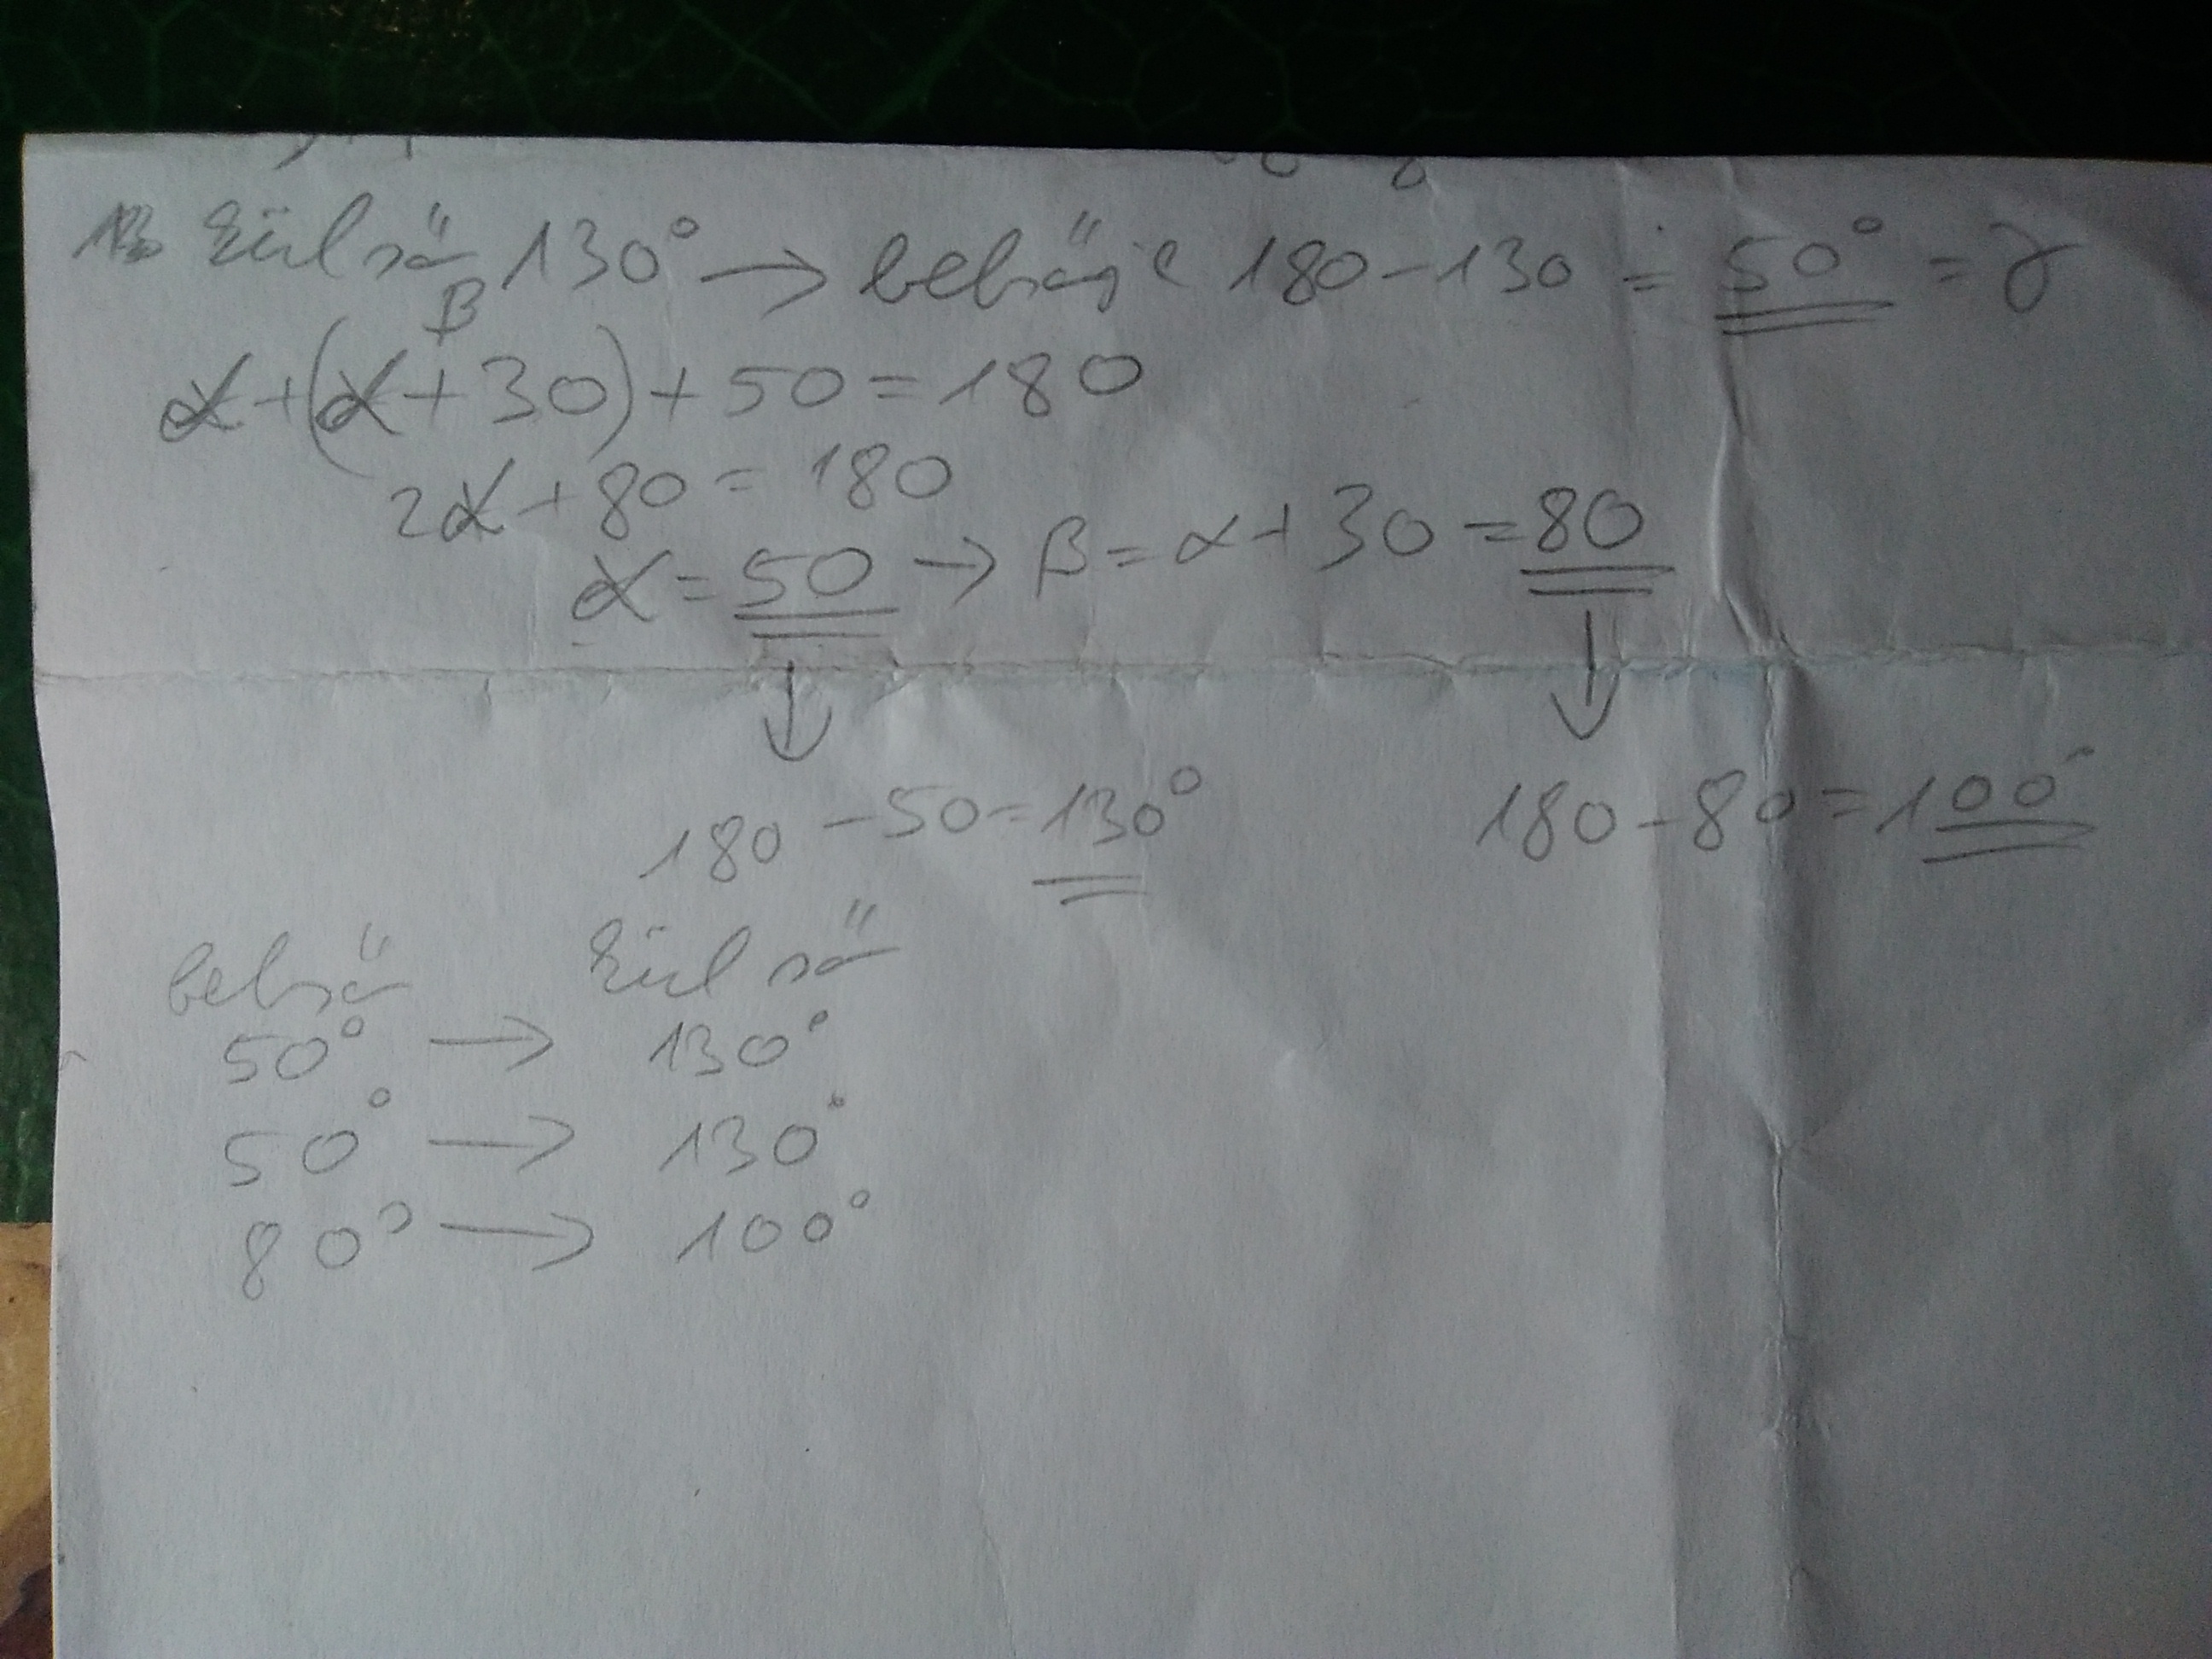 Külső 130° → belsője 180-130 = 50° = γ
β
α+(α+30)+50=180
2α+80=180
α=50 → β=α+30=80
↓ ↓
180-50=130° 180-80=100°
belső külső
50° → 130°
50° → 130°
80° → 100°